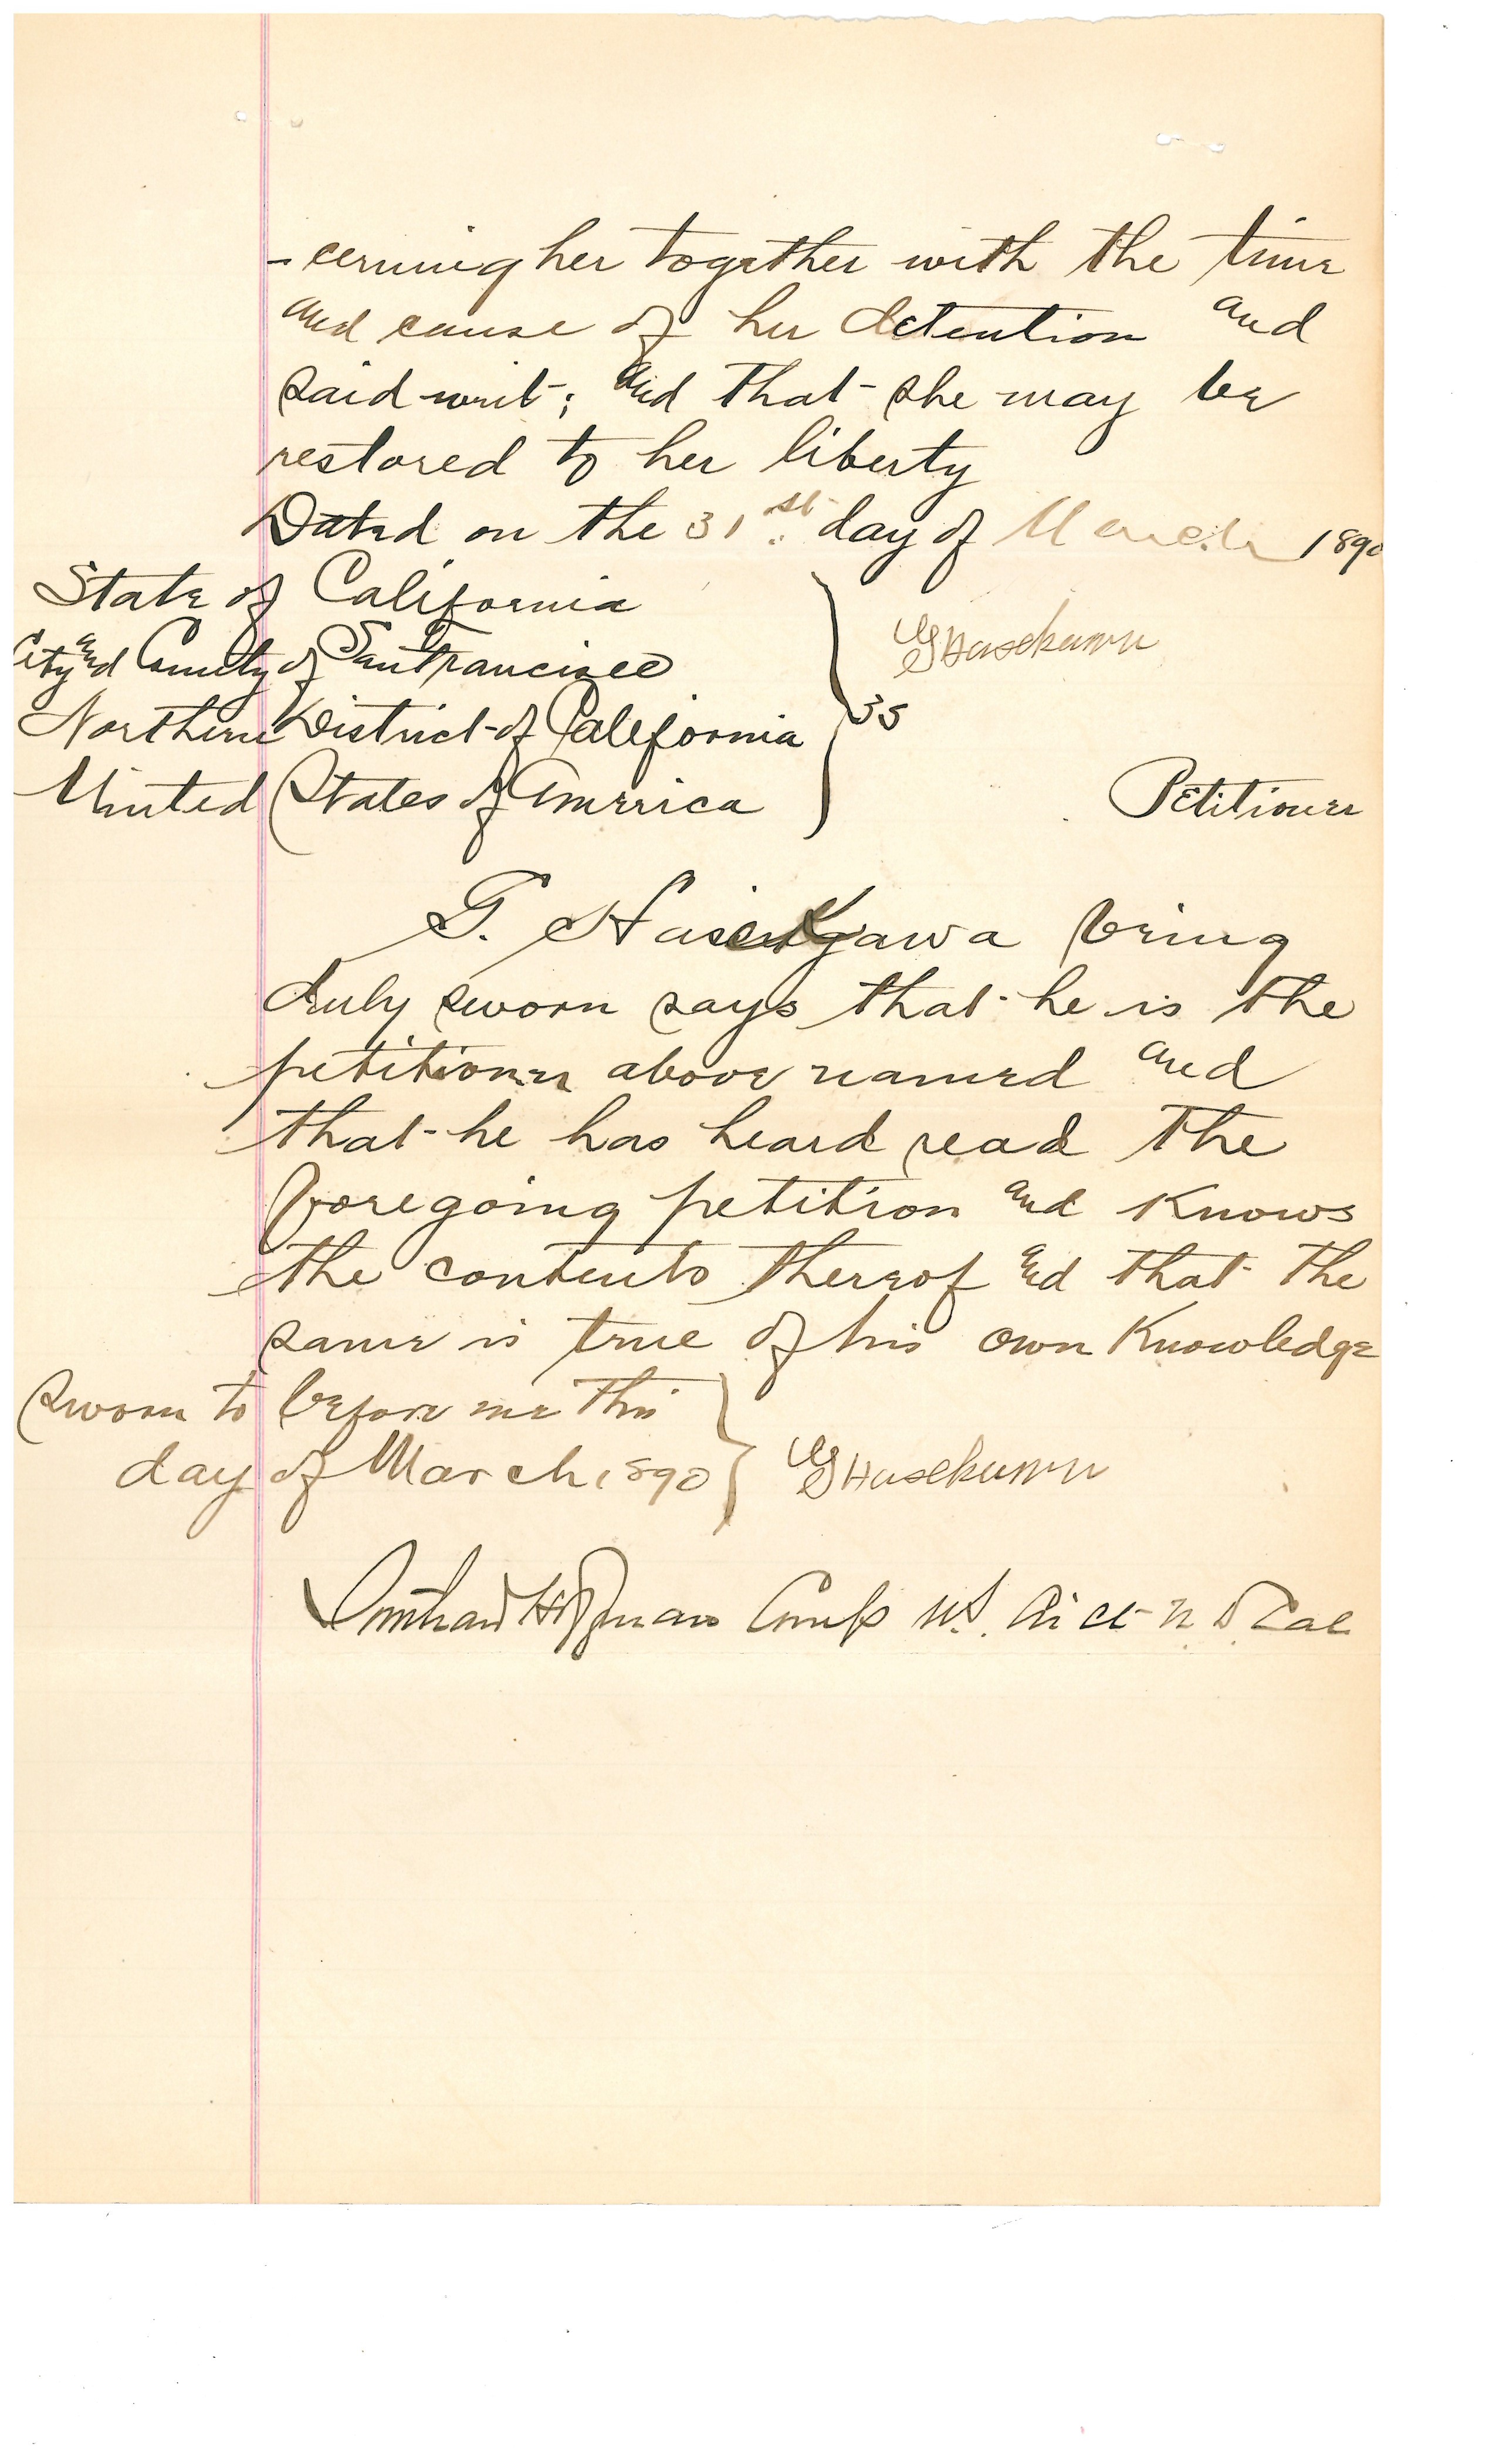 -cerning her together with the time
and cause of her detention and
said writ; and that she may be
restored to her liberty
Dated on the 31st day of March 1890
State of California
City and County of San Francisco
Northern District of California
United States of America
SS
G Hasekawa
Petitioner
G. Hasekawa being
duly sworn says that he is the
petitioner above named and
that he has heard read the
foregoing petition and knows
the contents thereof and that the
same is true of his own knowledge
Sworn to before me this
day of March 1890
G Hasekawa
Hoffman Comr U.S. Ci Ct N D Cal